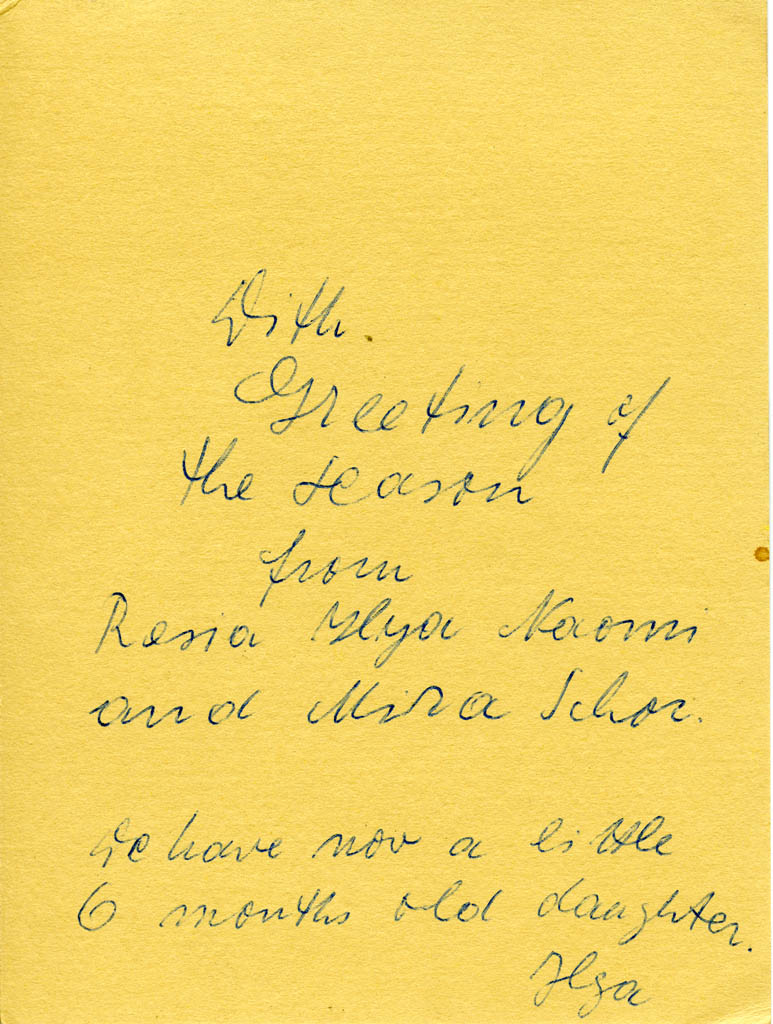 With
Greeting of
the season
from
Resia Ilya Naomi
and Mira Schor.
We have now a little
6 months old daughter.
Ilya